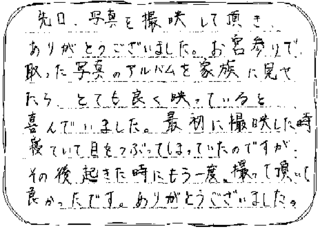 先日、写真を撮映して頂き
ありがとうございました。お宮参りで
取った写真のアルバムを家族に見せ
たら、とても良く映っていると
喜んでいました。最初に撮映した時
寝ていて目をつぶってしまっていたのですが、
その後、起きた時にもう一度、撮って頂いて
良かったです。ありがとうございました。